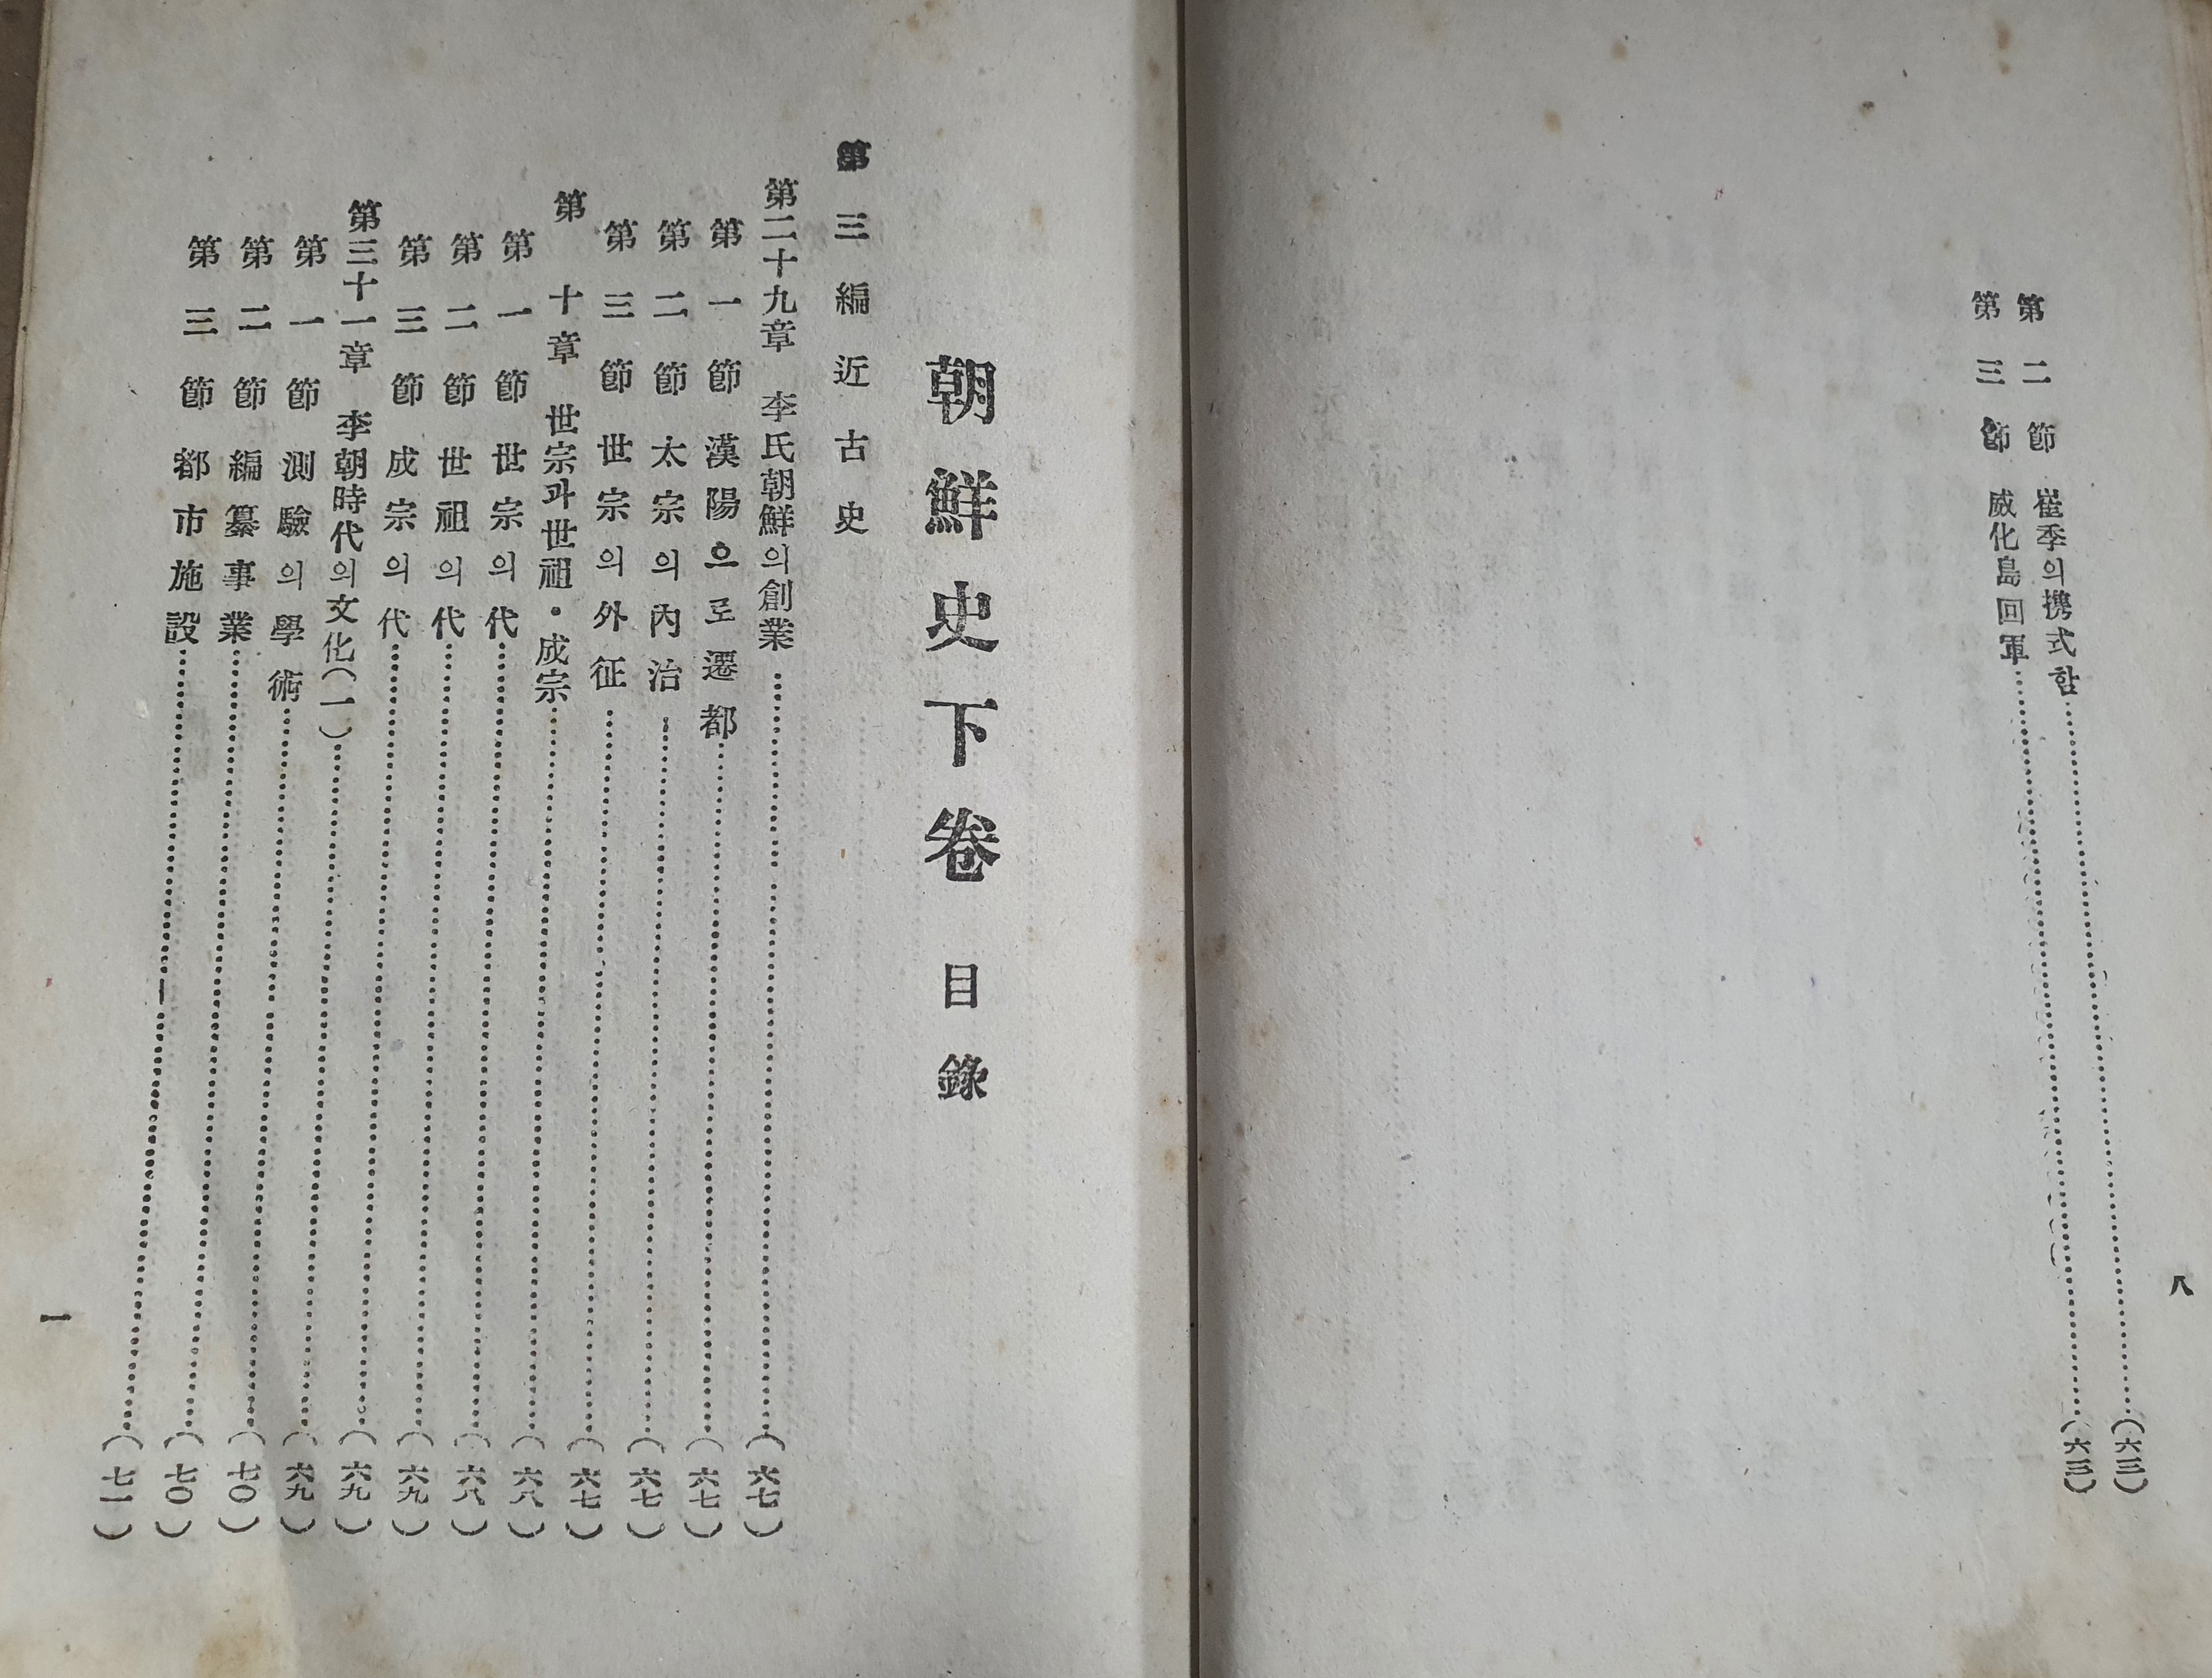 第二節 崔季의携式함 (六三)
第三節 威化島回軍 (六三)
八
朝鮮史下卷 目錄
第三編 近古史
第二十九章 李氏朝鮮의創業 (六七)
第一節 漢陽으로遷都 (六七)
第二節 太宗의內治 (六七)
第三節 世宗의外征 (六七)
第 十章 世宗과世祖・成宗 (六八)
第一節 世宗의代 (六八)
第二節 世祖의代 (六九)
第三節 成宗의代 (六九)
第三十一章 李朝時代의文化(一) (六九)
第一節 測驗의學術 (七〇)
第二節 編纂事業 (七〇)
第三節 都市施設 (七一)
一